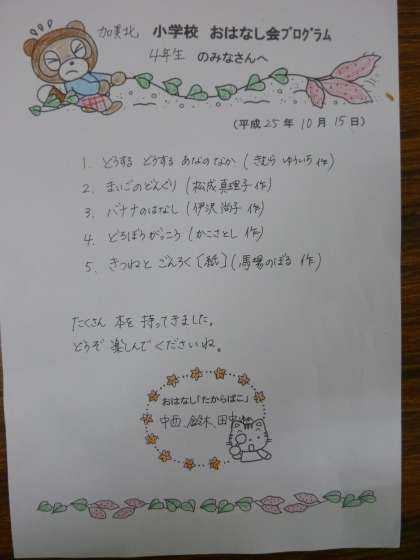 加美北 小学校 おはなし会プログラム
4年生 のみなさんへ
(平成 25 年 10 月 15 日)
1. どうする どうする あなのなか (きむら ゆういち 作)
2. まいごのどんぐり (松成真理子 作)
3. バナナのはなし (伊沢 尚子 作)
4. どろぼうがっこう (かこさとし 作)
5. きつねと ごんろく [紙] (馬場のぼる 作)
たくさん 本を 持ってきました。
どうぞ 楽しんで くださいね。
おはなし「たからばこ」
中西、鈴木、田中